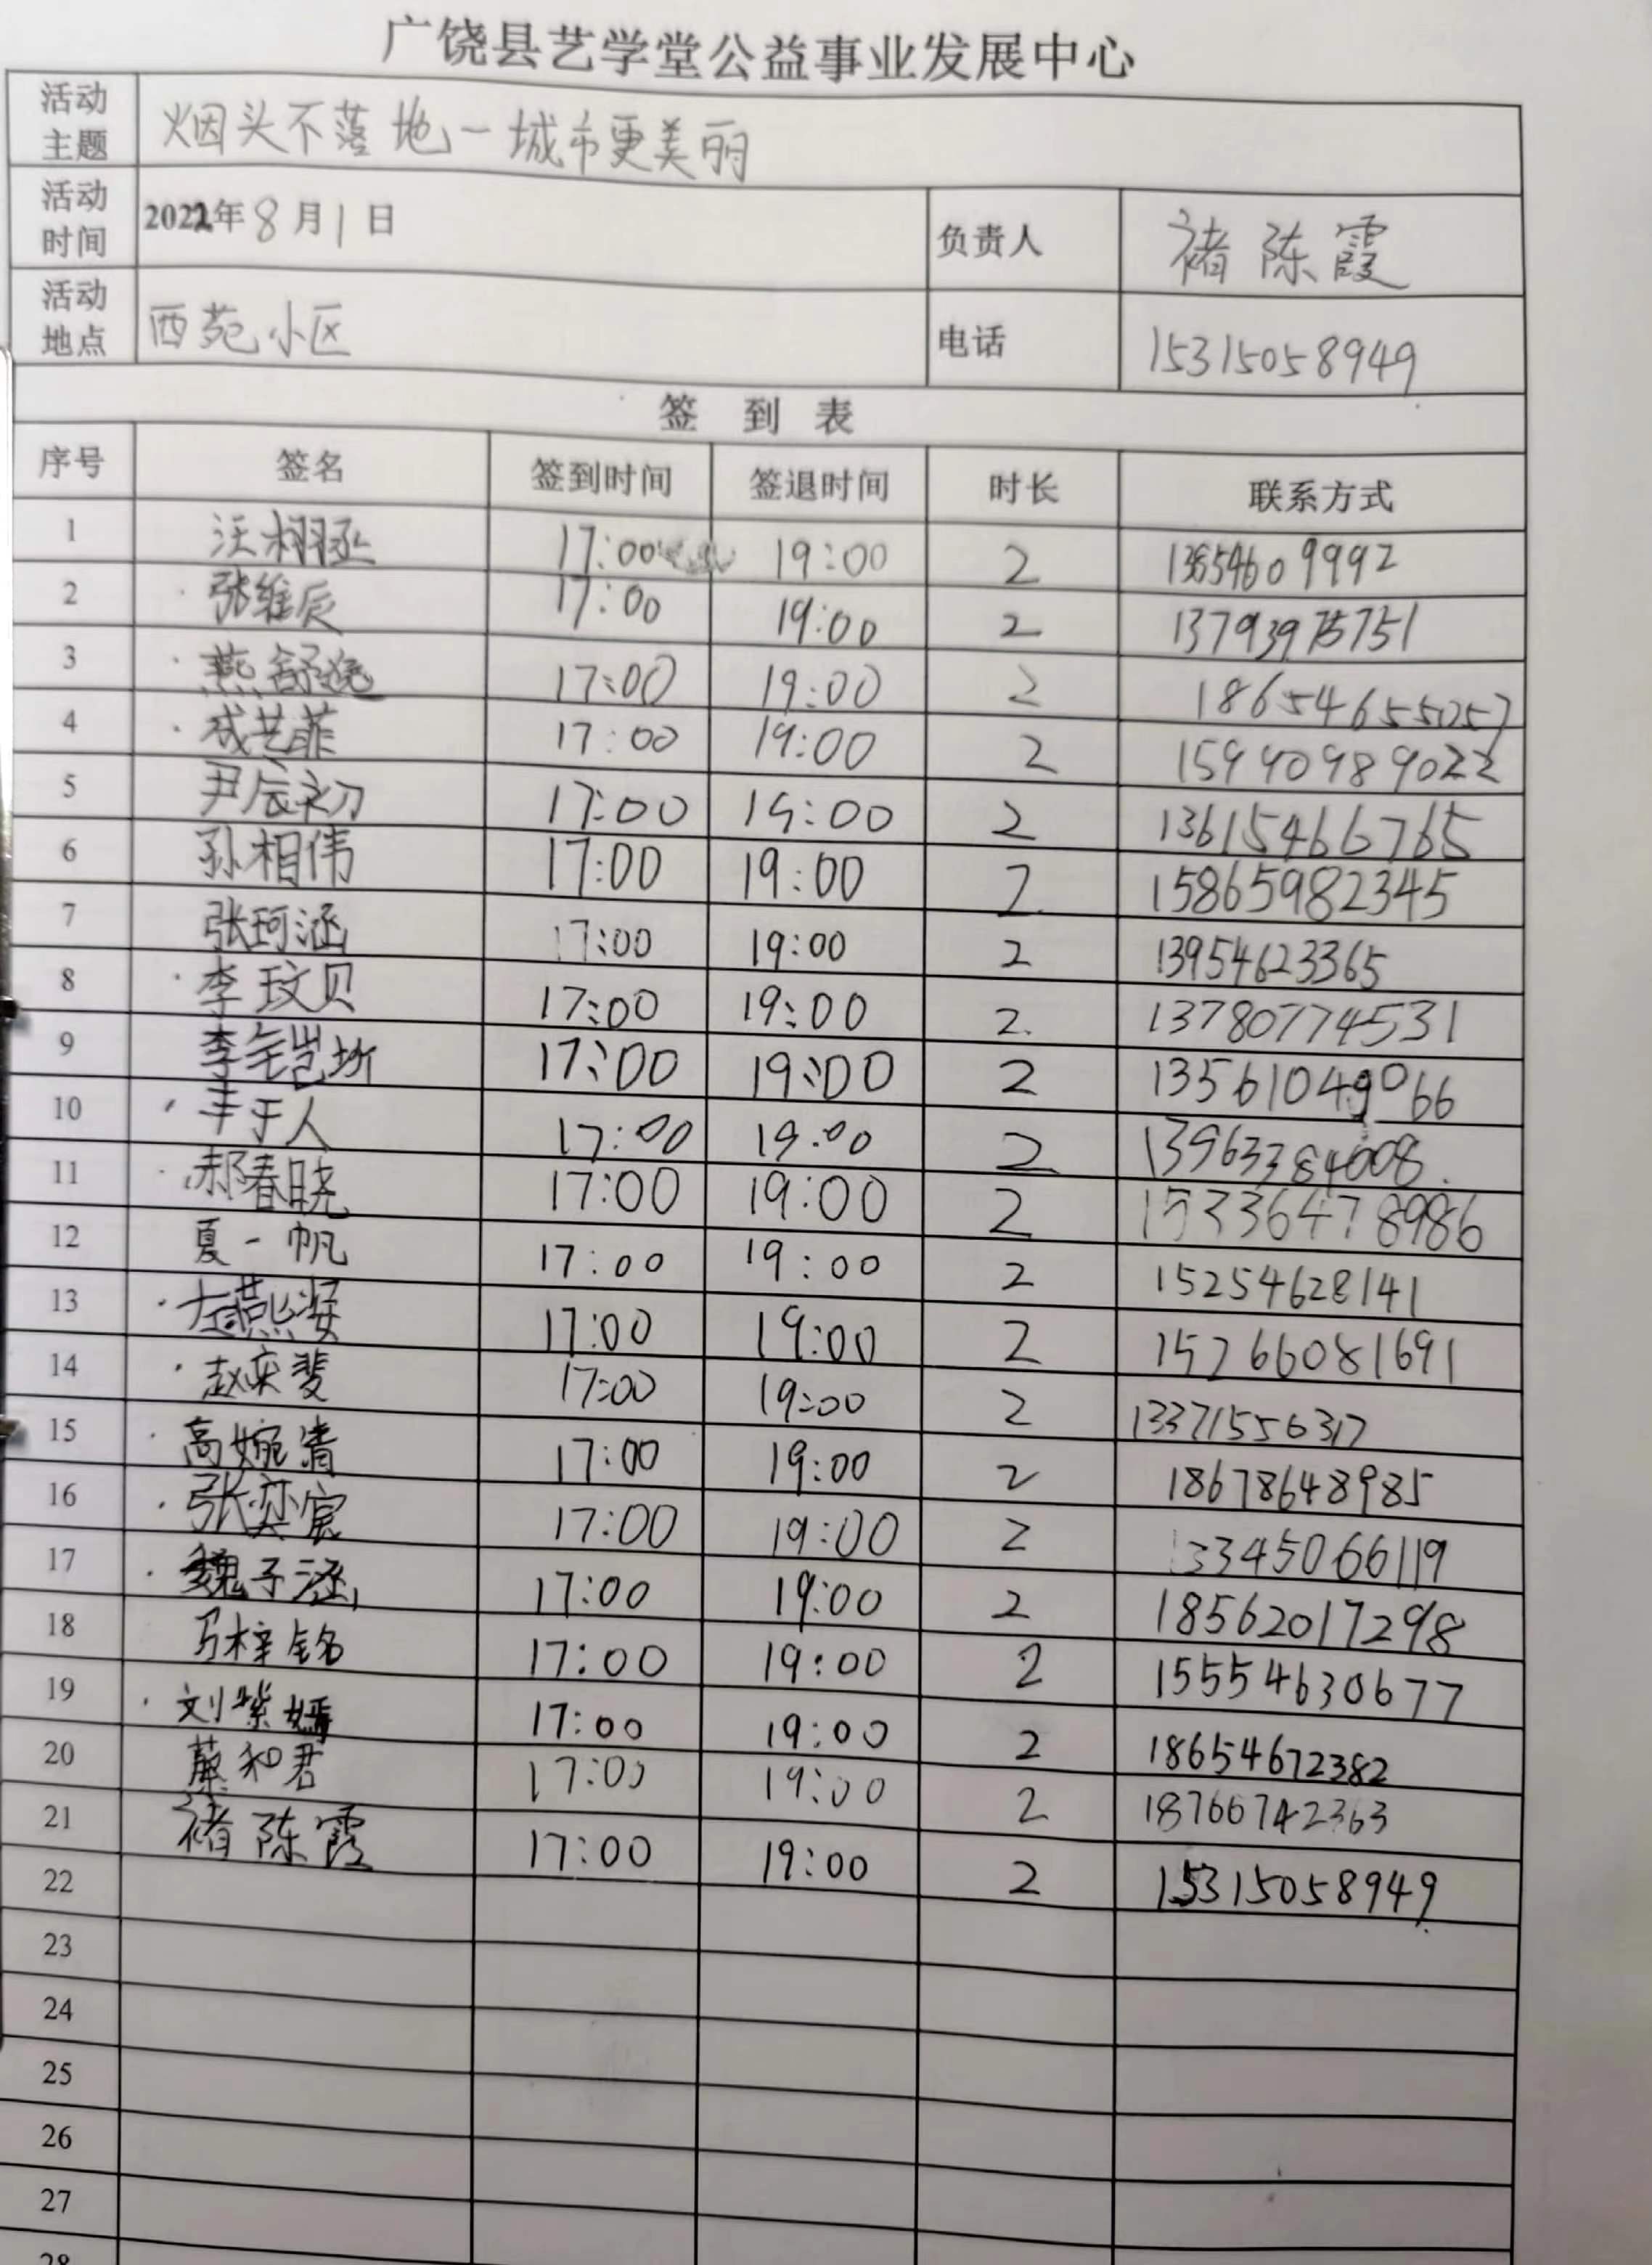 广饶县艺学堂公益事业发展中心
活动主题 烟头不落地一城市更美丽
活动时间 2022年8月1日 负责人 褚陈霞
活动地点 西苑小区 电话 15315058949
签 到 表
序号 签名 签到时间 签退时间 时长 联系方式
1 17:00 19:00 2 13854609992
2 张维辰 17:00 19:00 2 13793975751
3 燕舒逸 17:00 19:00 2 18654655057
4 成艺菲 17:00 19:00 2
5 尹辰初 17:00 19:00 2 13615466765
6 孙相伟 17:00 19:00 2 15865982345
7 张珂涵 17:00 19:00 2 13954623365
8 李玟贝 17:00 19:00 2 137807774531
9 17:00 19:00 2 13561049066
10 丰于人 17:00 19:00 2 13963384008
11 郝春晓 17:00 19:00 2 15336478986
12 夏一帆 17:00 19:00 2 15254628141
13 17:00 19:00 2 15266081691
14 赵奕斐 17:00 19:00 2 13371556317
15 高婉清 17:00 19:00 2 18678648985
16 张奕宸 17:00 19:00 2 13345066119
17 魏子涵 17:00 19:00 2 18562017298
18 马梓铭 17:00 19:00 2 15554630677
19 刘紫嫣 17:00 19:00 2 18654672382
20 蔡和君 17:00 19:00 2 18766742363
21 褚陈霞 17:00 19:00 2 15315058949
22
23
24
25
26
27
28